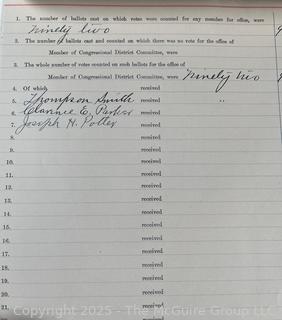 1. The number of ballots cast on which votes were counted for any member for office, were
ninety two
2. The number of ballots cast and counted on which there was no vote for the office of
Member of Congressional District Committee, were
3. The whole number of votes counted on such ballots for the office of
Member of Congressional District Committee, were ninety two
4. Of which received
5. Thompson Smith received "
6. Clarence E. Parker received
7. Joseph H. Potter received
8. received
9. received
10. received
11. received
12. received
13. received
14. received
15. received
16. received
17. received
18. received
19. received
20. received
21. received
Copyright 2025 - The McGuire Group LLC